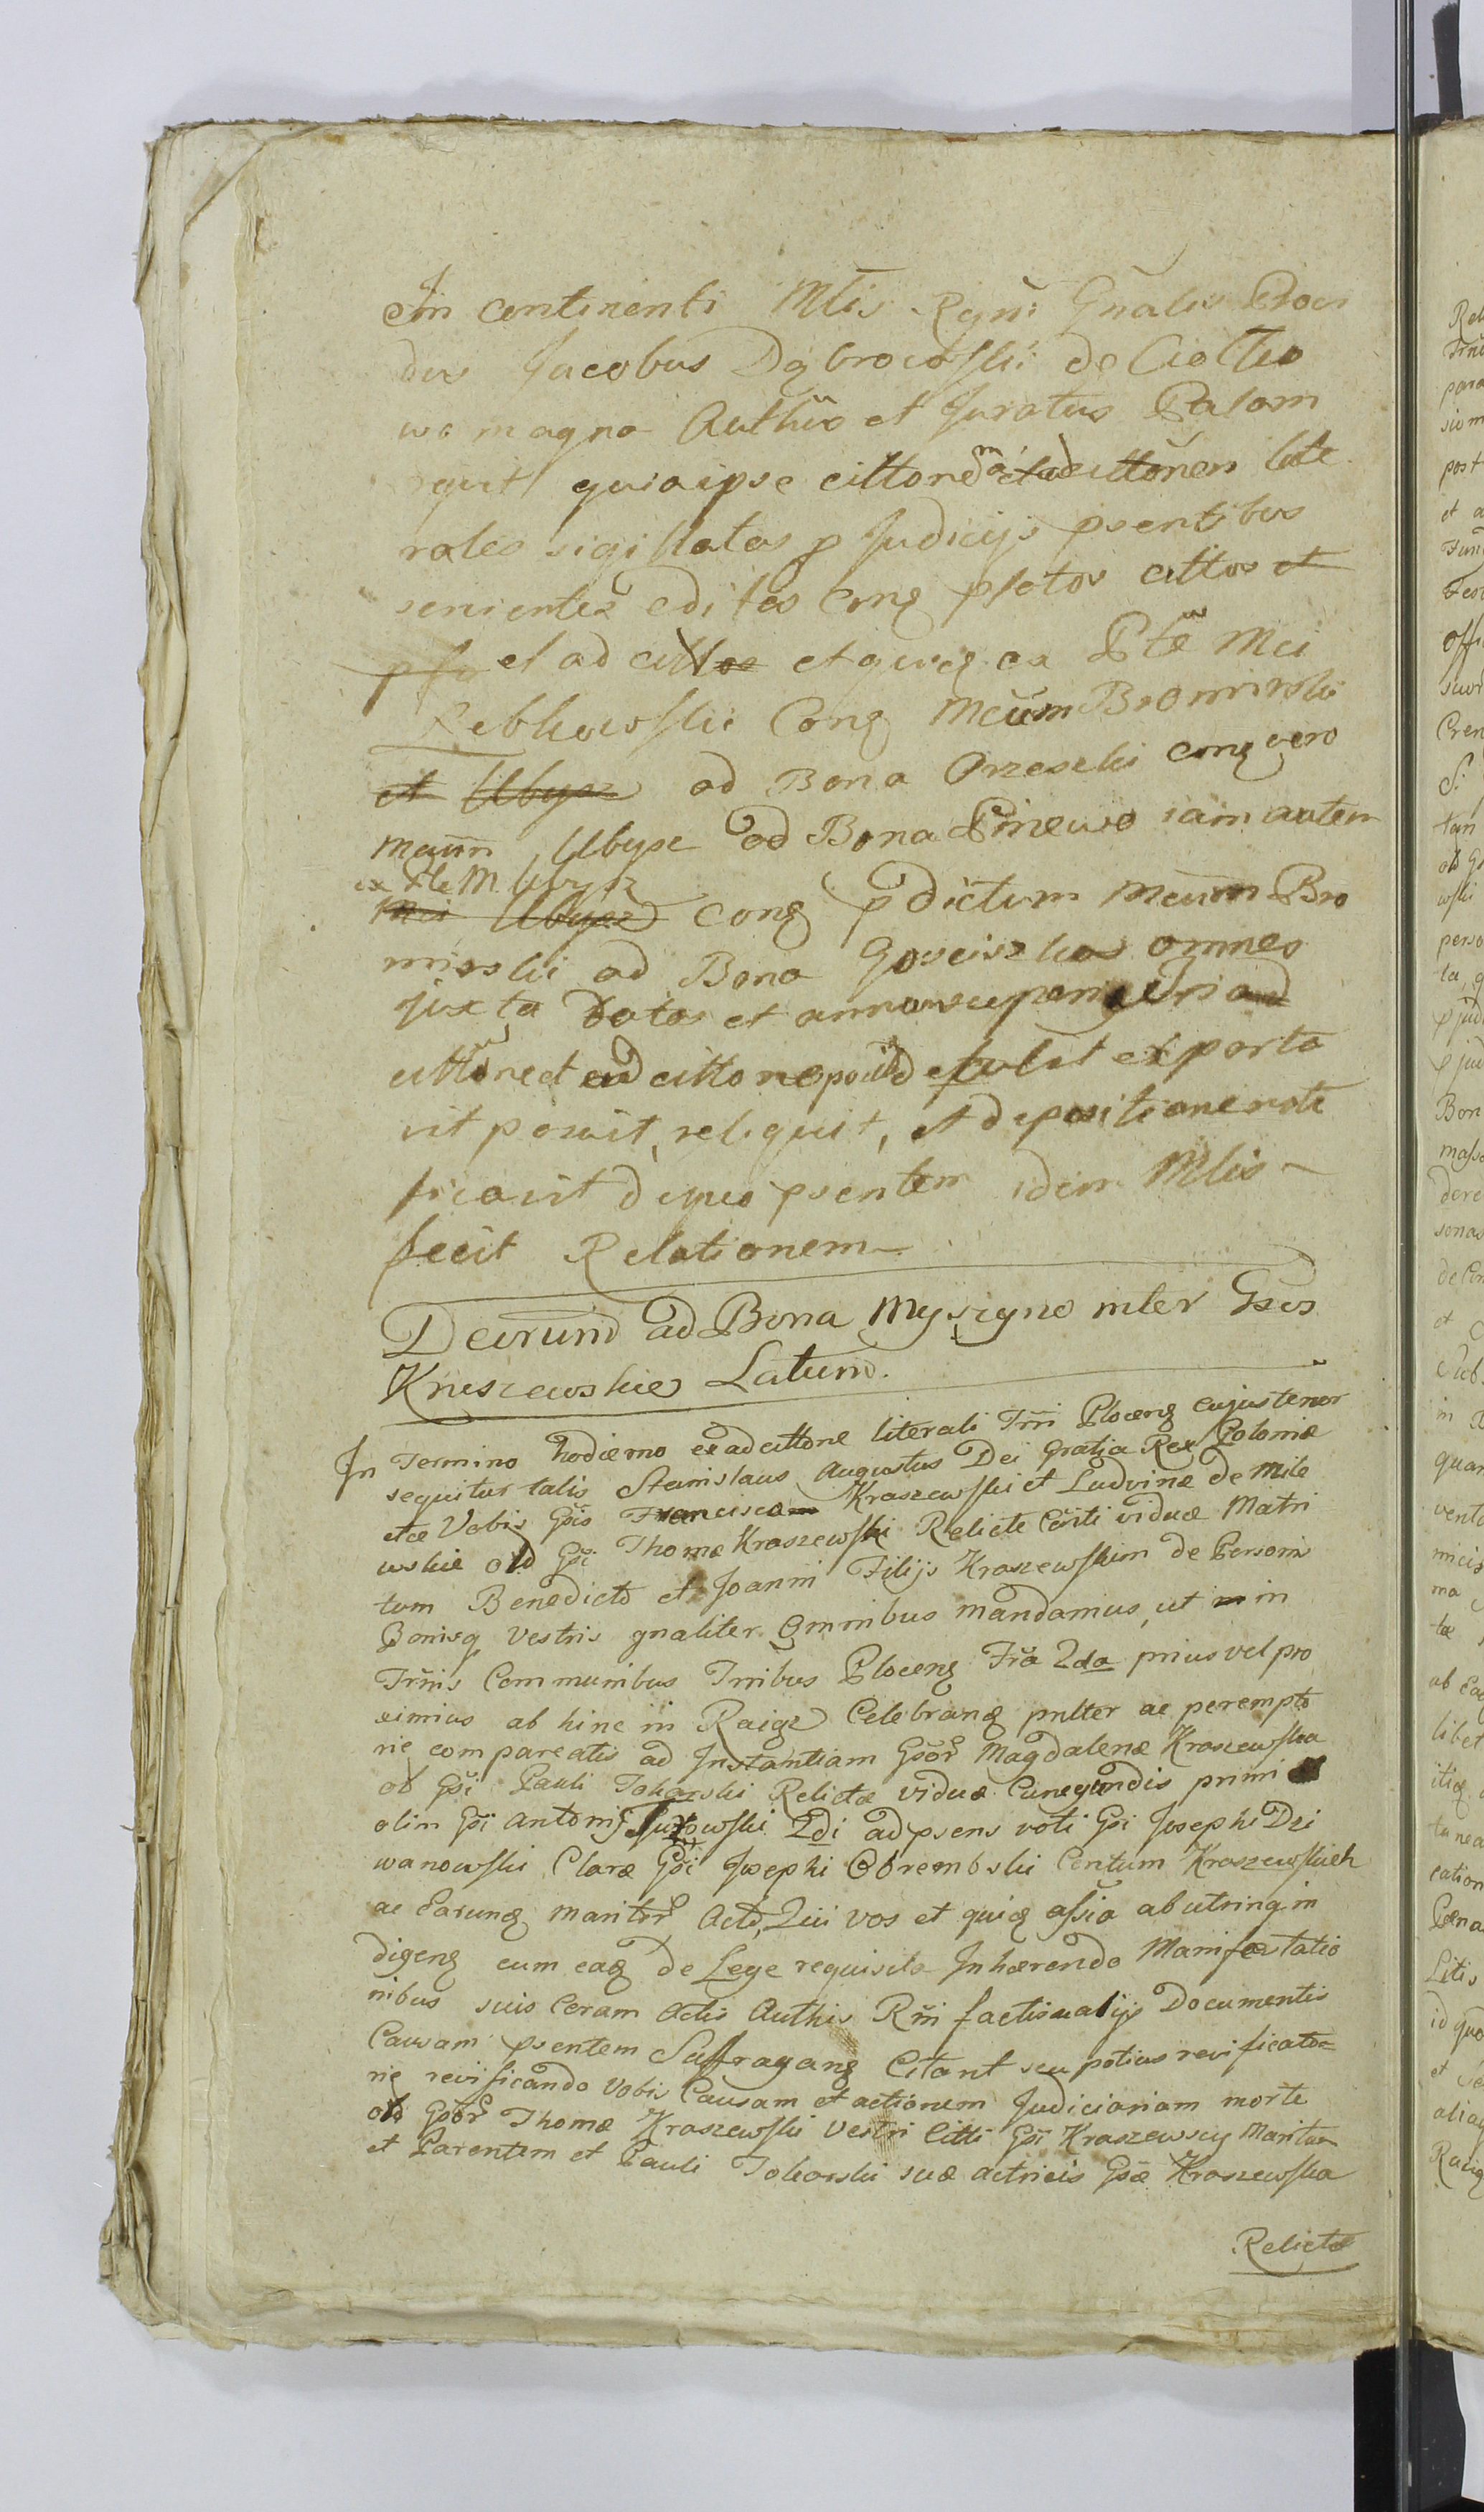 In continenti Mtis Regni Gnalis Provi
dus Jacobus Dąbrowski de Ciołko
wo magno Authus et Juratus Palam
quia ipse cittone et adcittonen lite
rales sigillatas p Judicijs psentibus
senientes editas conq pfatos cittos et
et ad cittos et quidq ex Pte Mci
Rebkowski Conq Mcum Bromirski
et Ubysz ad Bona Orzeselki conq vero
Mcum Ubysz ad Bona Pinewo iam autem
ex Pte M. Ubysz
Mci Ubysz conq pdictum Mcum Bro
mirski ad Bona Gosciszka omnes
juxta Datas et annum
cittone et ad cittone tulit exporta
vit posuit, reliquit, et depositione noti
ficavit deque psentem idem Mtis
fecit Relationem
Decrum ad Bona Myszyno inter Gsos
Kruszewskie Latum.
In Termino hodierno ex adcittone literali Trri Plocenq cujus tenor
sequitur talis Stanislaus Augustus Dei Gratia Rex Poloniæ
etcæ Vobis Gsis Franciscam Kraszewski et Ludvinæ de Mile
wskie old Gsi Thomæ Kraszewski Relicte Csiti viduæ Matri
tum Benedicto et Joanni Filijs Kraszewskim de Personis
Bonisq Vestris gnaliter Omnibus mandamus, ut in in
Trrnis Communibus Trribus Plocenq Fra 2da prius vel pro
ximius ab hinc in Raigz Celebranq pnlter ac perempto
rie compareatis ad Instantiam Gsor Magdalenæ Kraszewska
ol Gsi Pauli Tokarski Relictæ viduæ Cunegundis primi
olim Gsi Antonij Turowski 2di ad psens voti Gsi Josephi Dzi
wanowski Claræ Gsi Josephi Obrembski Centum Kraszewskich
ac Earunq maritor Acto, Qui vos et quiq assia ab utrinq in
digenq cum eaq de Lege requisita Inhærendo Manifestatio
nibus suis Coram Actis Authis Rni factis ac alijs Documentis
Causam psentem Suffraganq Citant seu potius reivificato
rie reivificando Vobis Causam et actionem Judiciariam morte
old Gsor Thomæ Kraszewski Vestri Citti Gsi Kraszewscy Maritum
et Parentem et Pauli Tokarski suæ actricis Gsæ Kraszewska
Relictæ